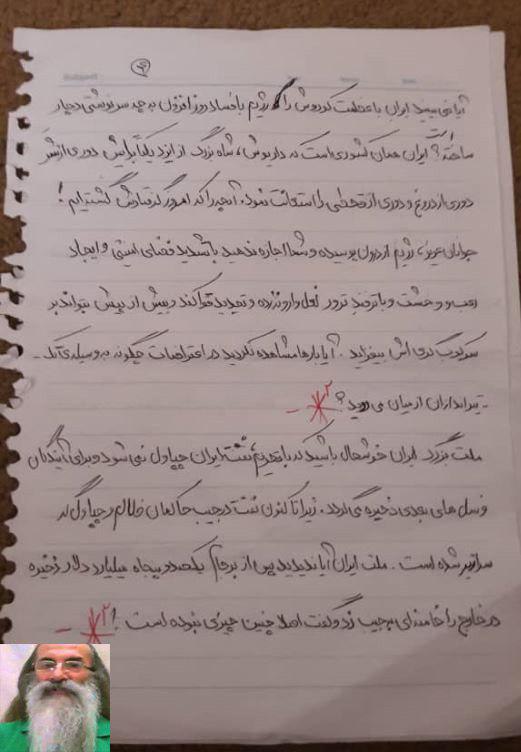 ۳
آیا نمی بینید ایران با عظمت کوروش را رژیم با فساد روز افزون به چه سرنوشتی دچار
ساخته است؟ ایران همان کشوری است که داریوش، شاه بزرگ از ایزد یکتا برایش دوری از شر
دوری از دروغ و دوری از قحطی را استغاثه نمود. آنچه را که امروز گرفتارش گشته ایم!
جوانان عزیز، رژیم از درون پوسیده و شما اجازه ندهید با تشدید فضای امنیتی و ایجاد
رعب و وحشت و با ترفند ترور نعل وارونه زده و تجدید قوا کند و بیش از پیش بتواند بر
سرکوب گری اش بیفزاید. آیا بارها مشاهده نکردید در اعتراضات چگونه به وسیله ی تک -
- تیراندازان از میان می روید؟ *۲ -
ملت بزرگ ایران خوشحال باشید که با تحریم، نفت ایران چپاول نمی شود و برای آیندگان
و نسل های بعدی ذخیره می گردد. زیرا تا کنون نفت در جیب حاکمان ظالم و چپاول گر
سرازیر شده است. ملت ایران آیا ندیدید پس از برجام یکصد و پنجاه میلیارد دلار ذخیره
در خارج را خامنه ای به جیب زد و گفت اصلا چنین چیزی نبوده است! *۳ -